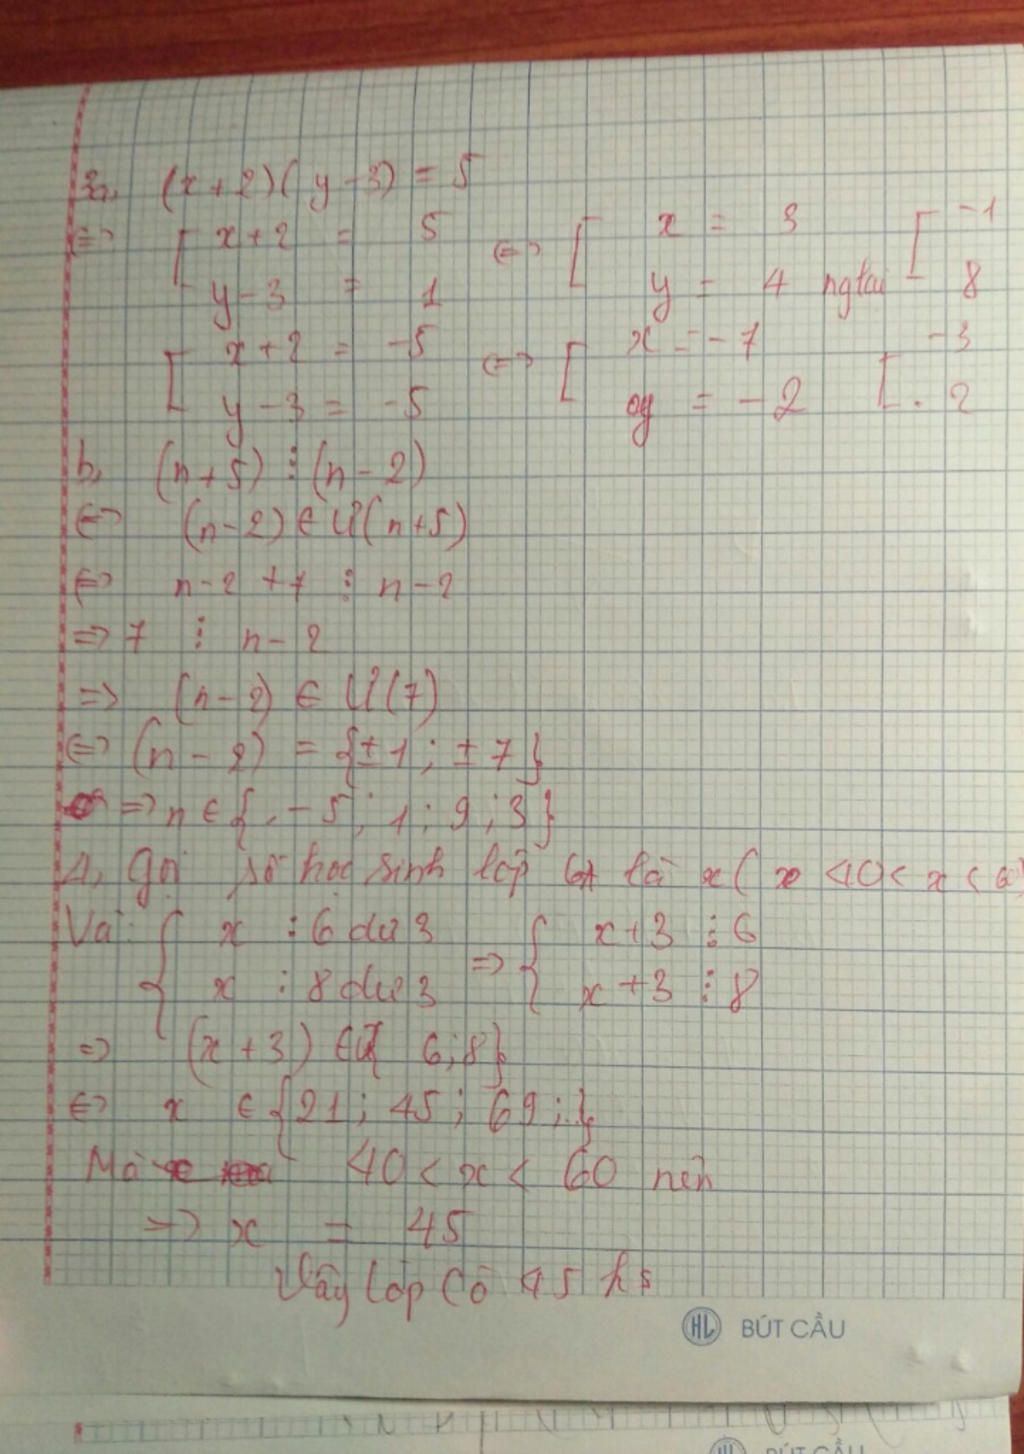 3a, (x+2)(y-3) = 5
<=> [ x+2 = 5 <=> [ x = 3 [ -1
y-3 = 1 y = 4 ng lại 8
[ x+2 = -5 <=> [ x = -7 -3
y-3 = -5 y = -2 [ . 2
b, (n+5) ⋮ (n-2)
<=> (n-2) ∈ Ư(n+5)
<=> n-2 +7 ⋮ n-2
=> 7 ⋮ n-2
=> (n-2) ∈ Ư(7)
<=> (n-2) = {±1; ±7}
=> n ∈ {-5; 1; 9; 3}
4, Gọi số học sinh lớp 6A là x ( 40 < x < 60
Và: { x : 6 dư 3 => { x+3 ⋮ 6
x : 8 dư 3 x+3 ⋮ 8
=> (x+3) ∈ 6;8}
<=> x ∈ {21; 45; 69; ..}
Mà 40 < x < 60 nên
=> x = 45
Vậy lớp có 45 hs
HL BÚT CẦU
BÚT CẦU